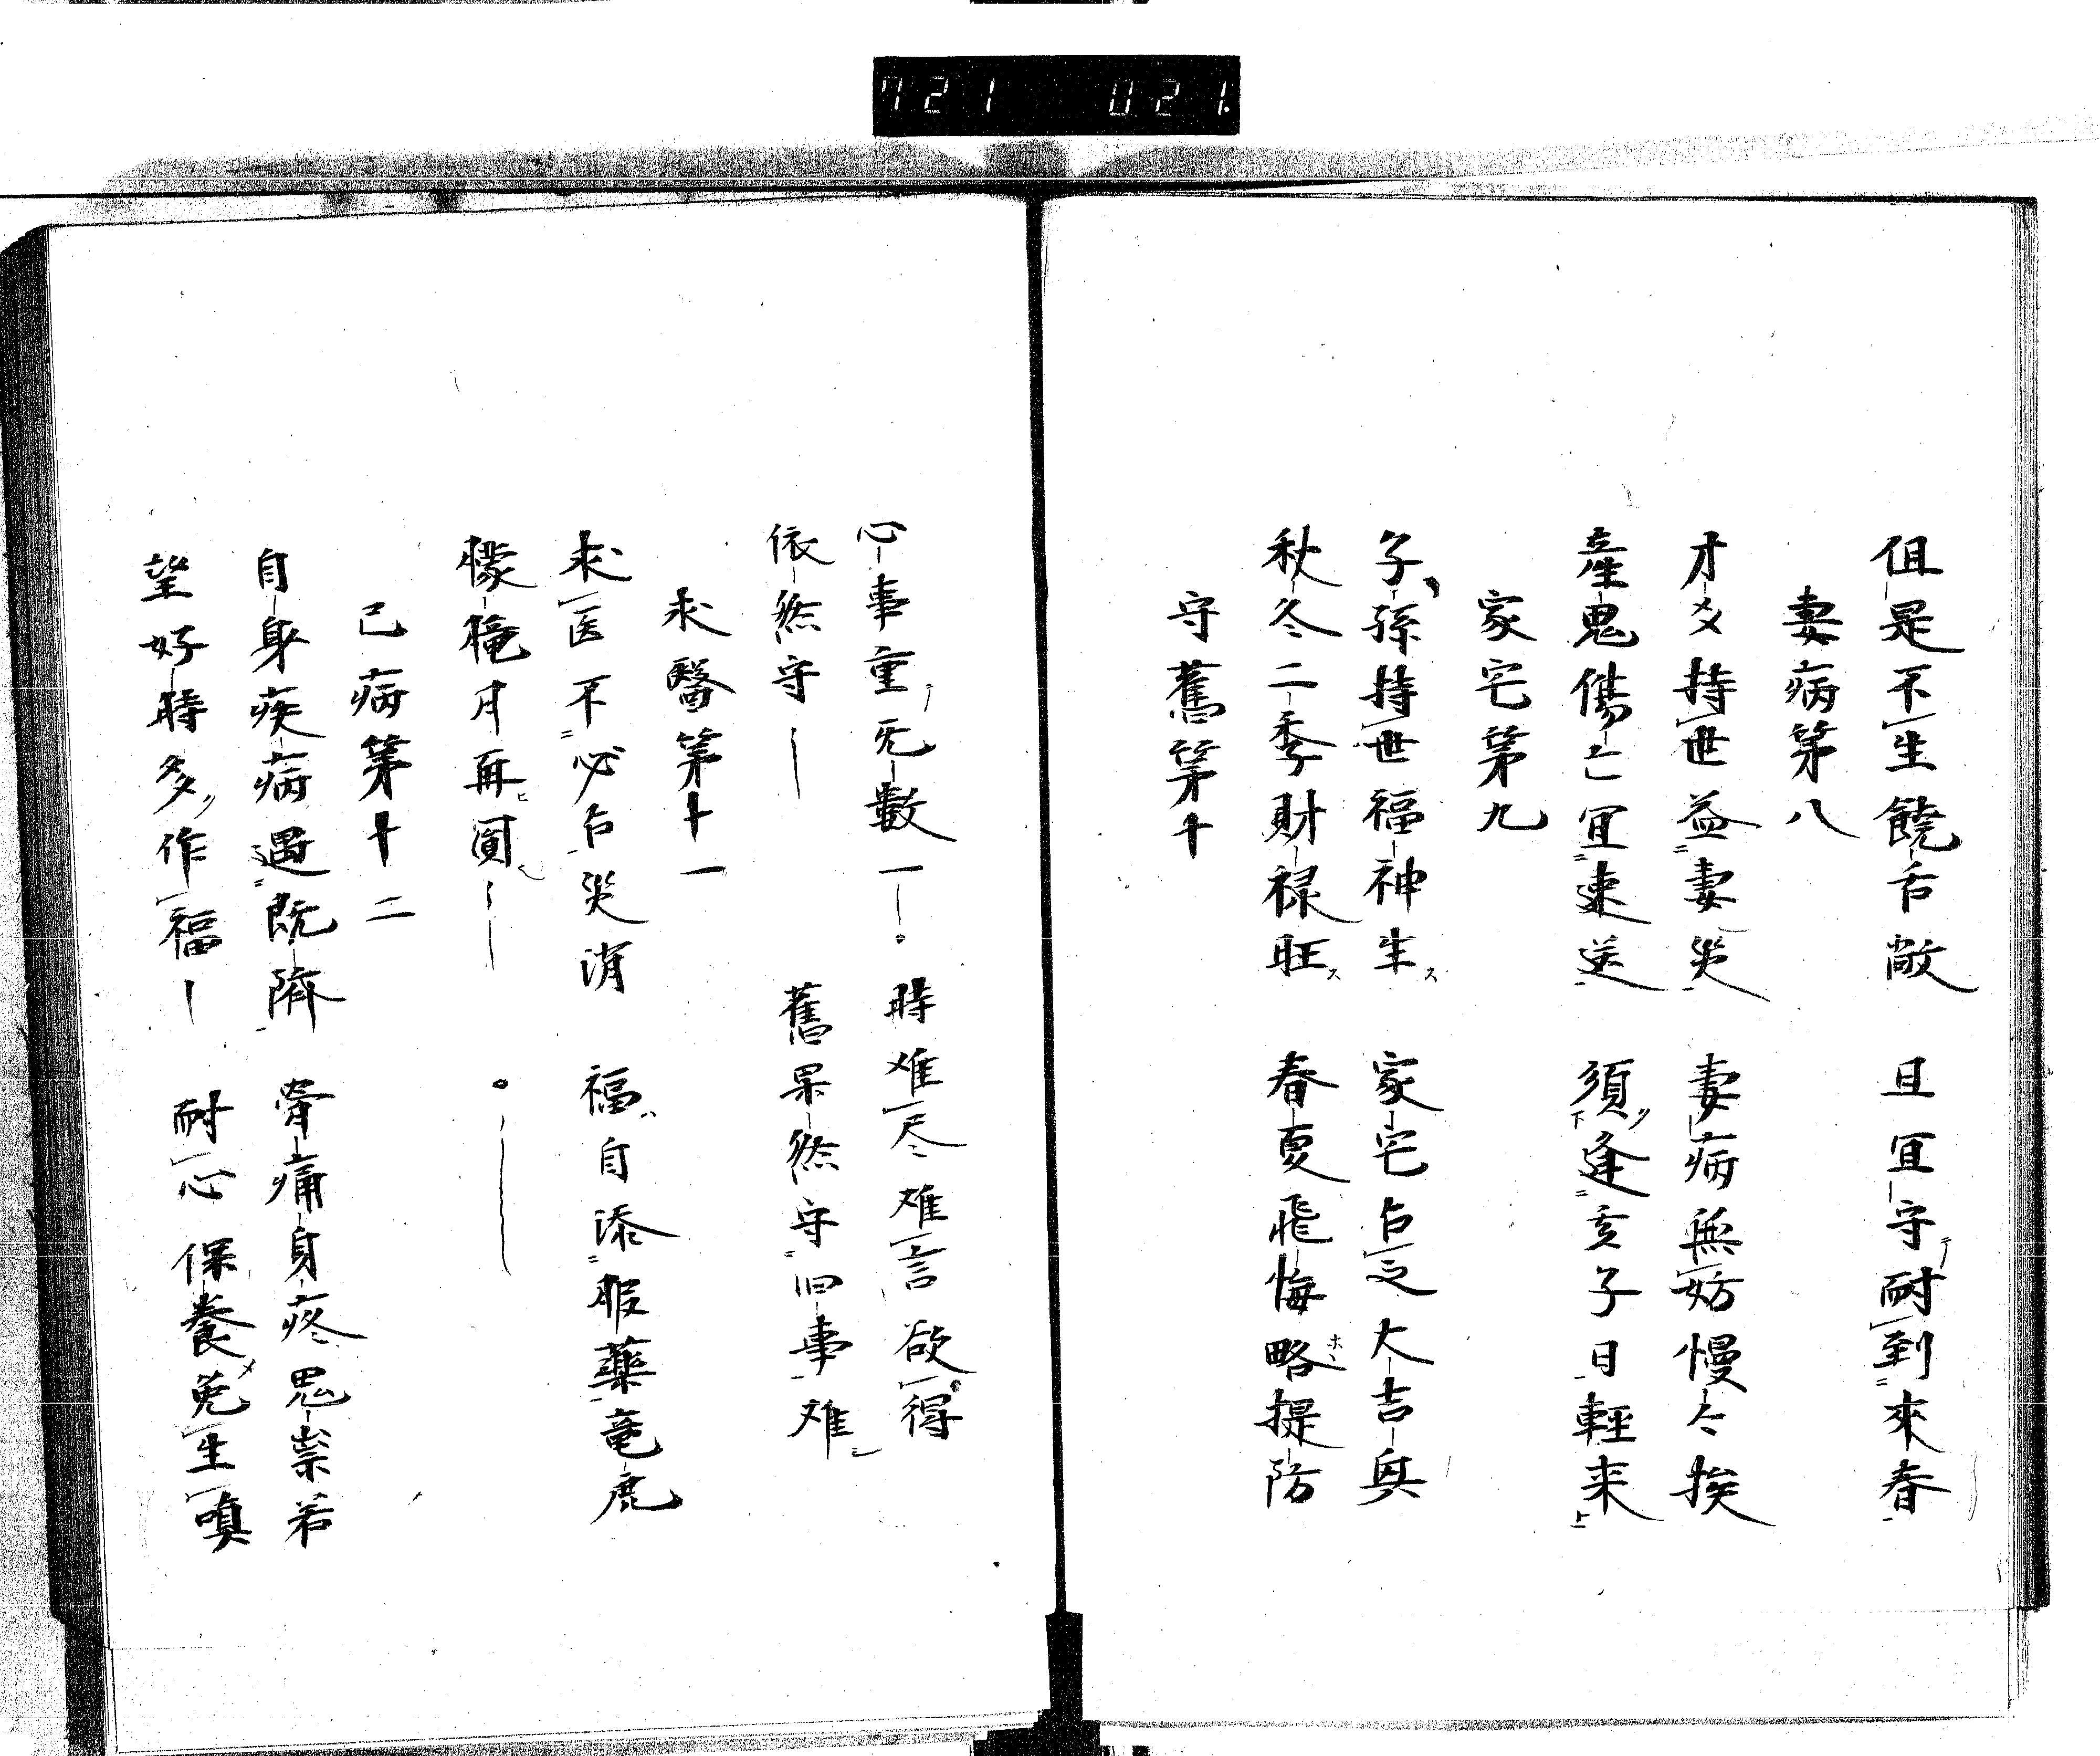 721 021
但是不生饒舌敵 且宜守テ耐到來春
妻病第八
才爻持世益妻災 妻病無妨慢々挨
產鬼傷亡宜速送 須逢亥子日輕来
家宅第九
子孫持世福神生ス 家宅占之大吉
秋冬二季財禄旺ス 春夏飛悔略提防
守舊第十
心事重テ无數一 時难尽难言欲得
依然守 舊果然守旧事难
求醫第十一
求医不必占災消 福自添服藥竜虎
朦朧月再圓
己病第十二
自身疾病遇既隮 脊痛身疼思祟若
望好時多作福 耐心保養免生嗔